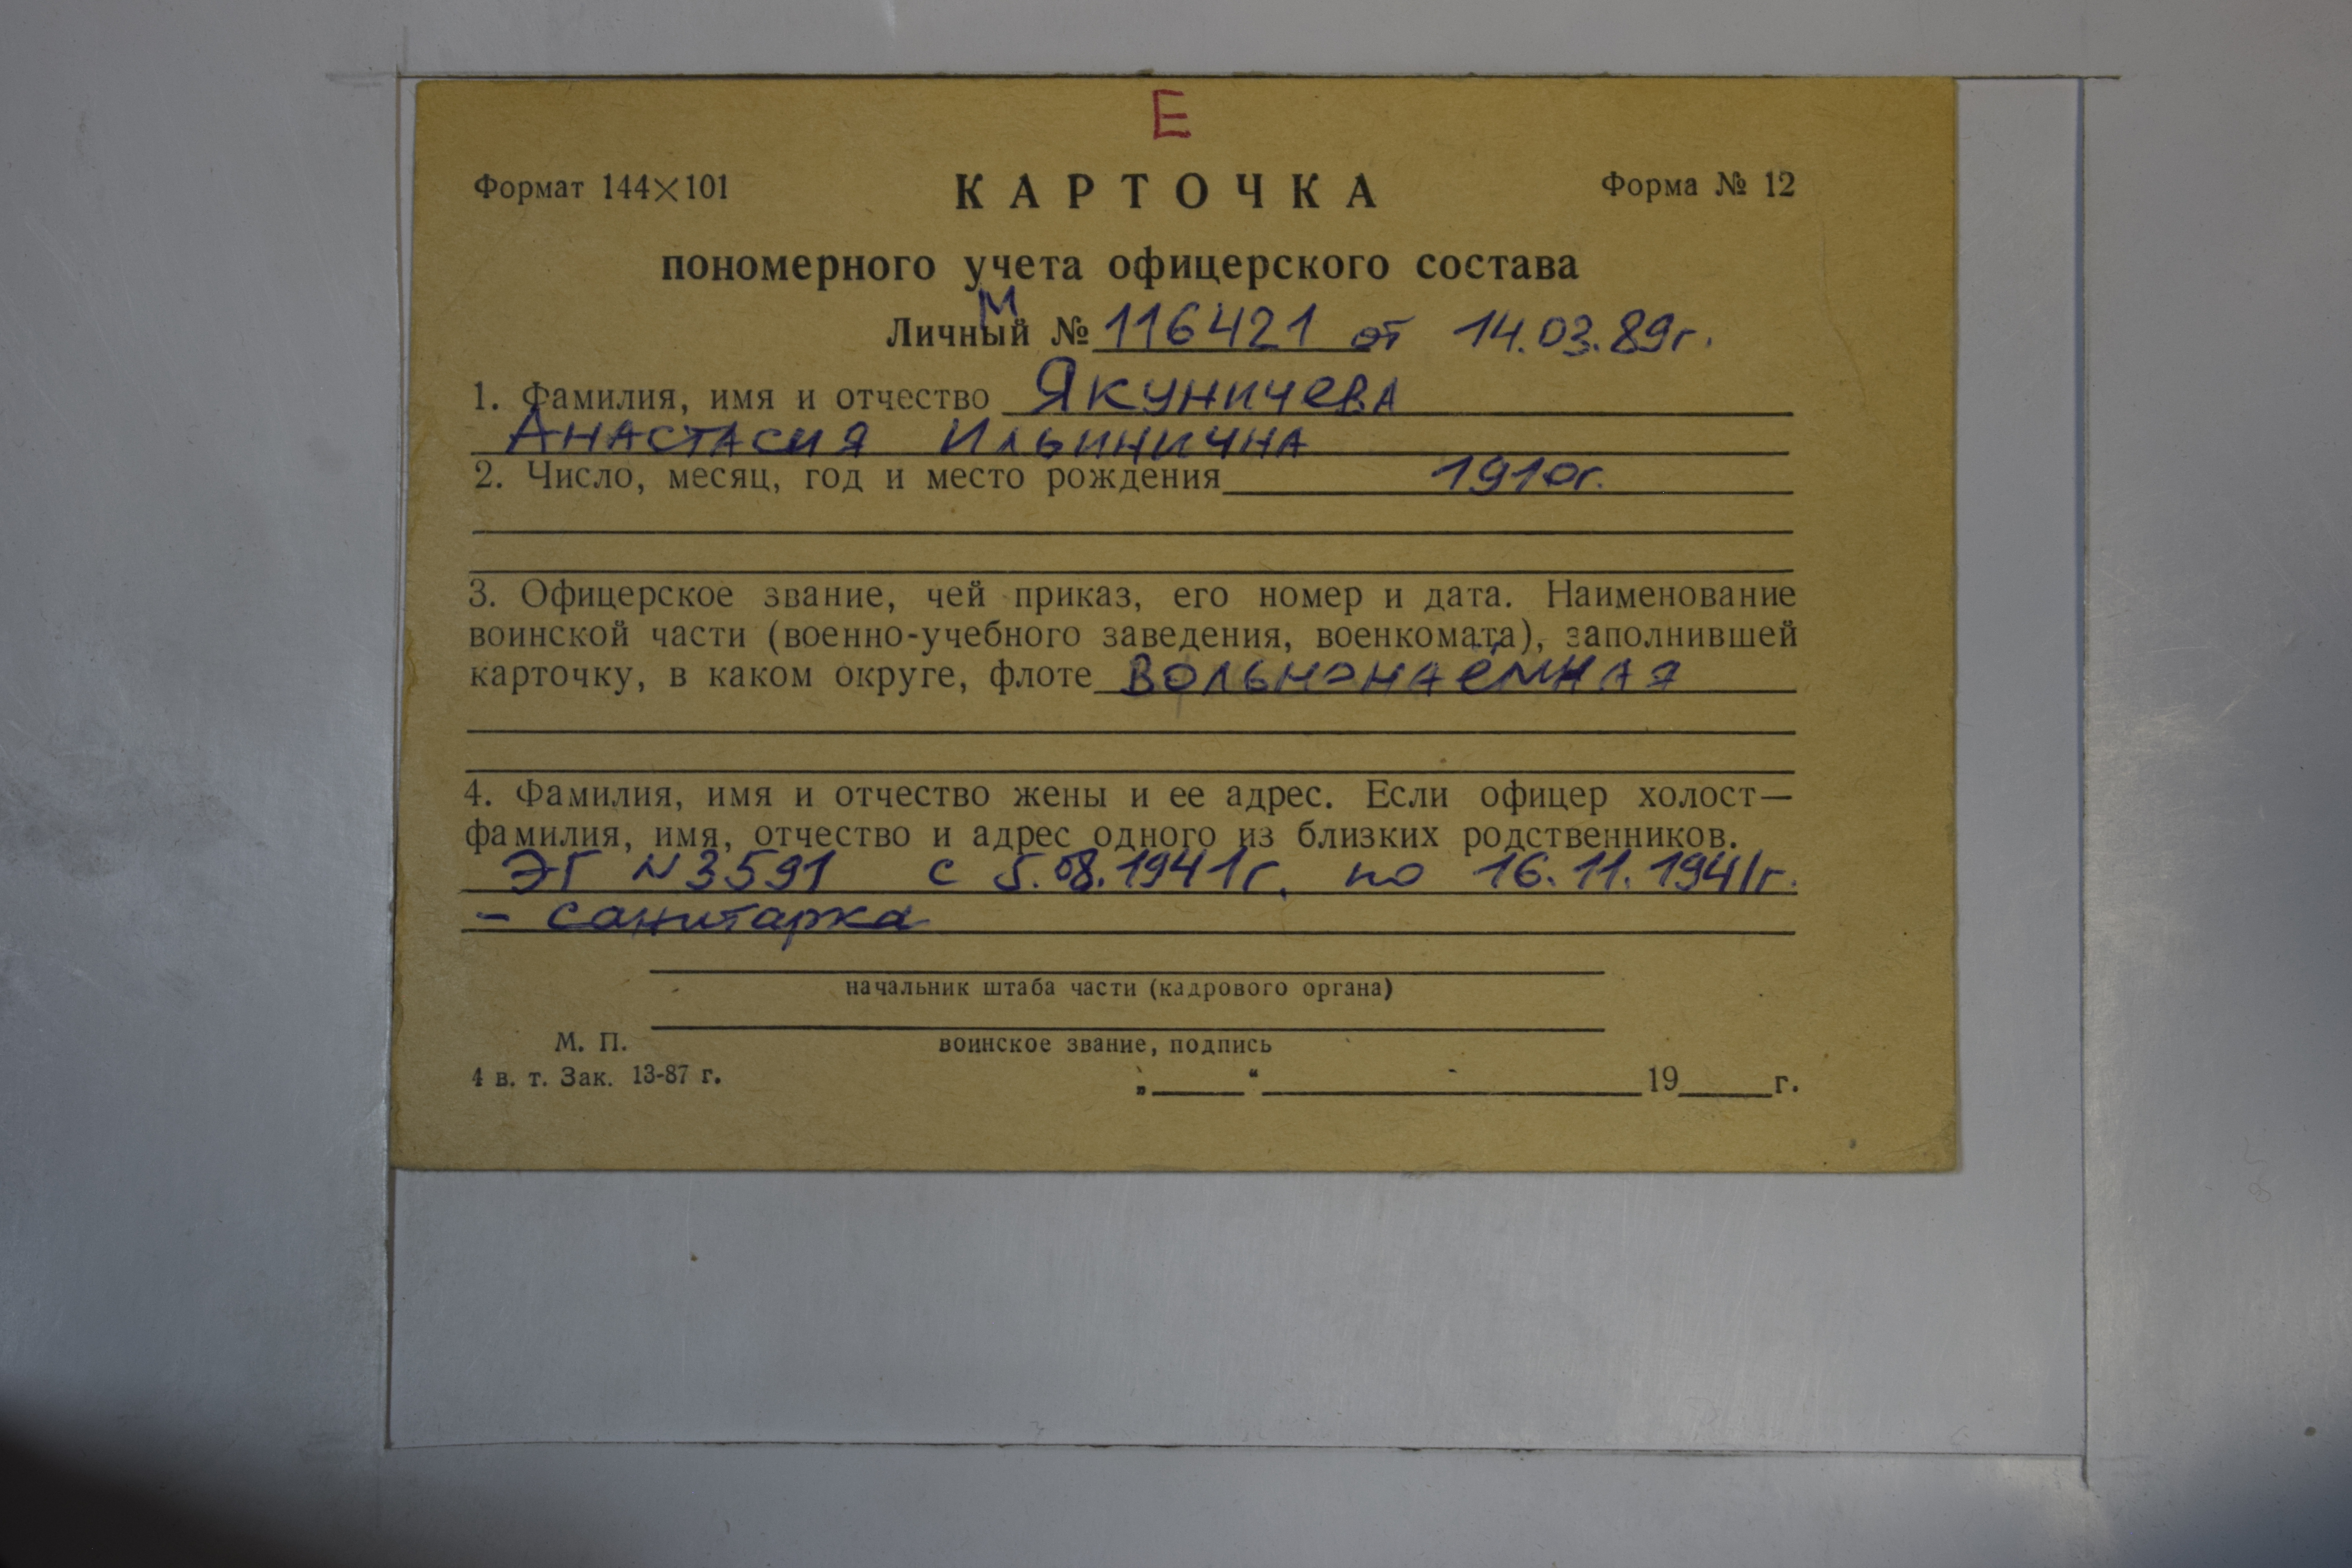 Е
Формат 144×101 КАРТОЧКА Форма № 12
пономерного учета офицерского состава
М
Личный № 116421 от 14.03.89г.
1. Фамилия, имя и отчество Якуничева
Анастасия Ильинична
2. Число, месяц, год и место рождения 1910г.
3. Офицерское звание, чей приказ, его номер и дата. Наименование
воинской части (военно-учебного заведения, военкомата), заполнившей
карточку, в каком округе, флоте Вольнонаёмная
4. Фамилия, имя и отчество жены и ее адрес. Если офицер холост—
фамилия, имя, отчество и адрес одного из близких родственников.
ЭГ N 3591 с 5.08.1941г. по 16.11.1941г.
- санитарка
начальник штаба части (кадрового органа)
М. П. воинское звание, подпись
4 в. т. Зак. 13-87 г. „ “ 19 г.